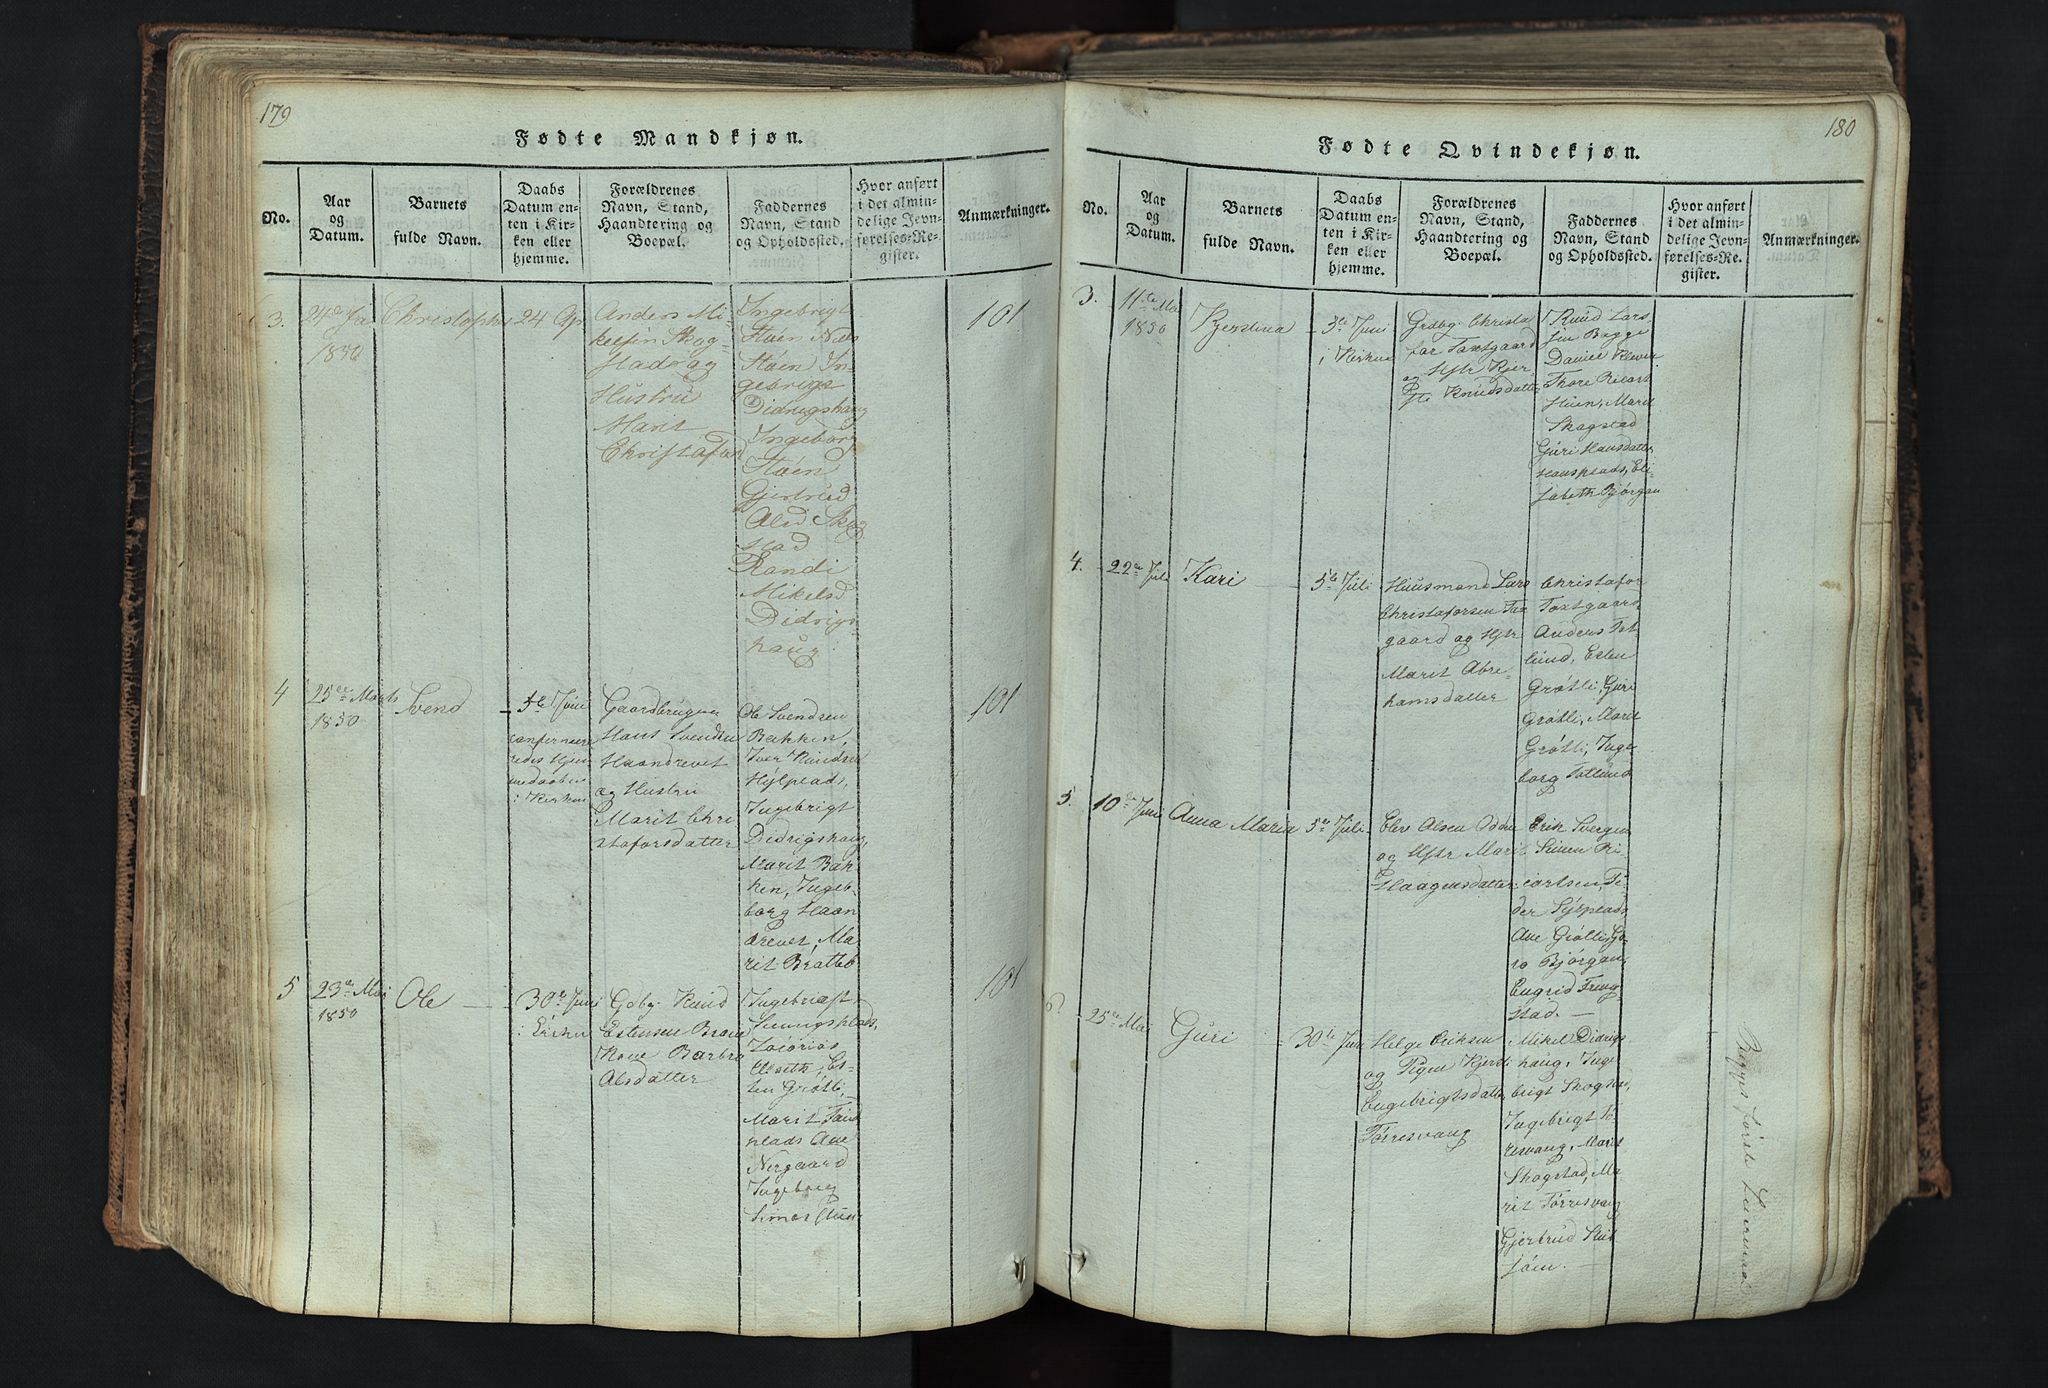 179
Fødte Mandkjøn.
No.
Aar
og
Datum.
Barnets
fulde Navn.
Daabs
Datum en-
ten i Kir-
ken eller
hjemme.
Forældrenes
Navn, Stand,
Haandtering og
Boepæl.
Faddernes
Navn, Stand
og Opholdssted.
Hvor anført
i det almin-
delige Jevn-
førelses-Re-
gister.
Anmærkninger.
3.
24de Ja
1850
Christopher
24 Ap
Anders Mi-
kelsen Skog
stad og
Hustru
Marit
Christafor
Ingebrigt
Støen Nels
Støen In
gebrigt
Didrigshaug
Ingeborg
Støen
Gjertrud
Alsd Skog
stad
Randi
Mikelsd
Didrigs-
haug
101
4
25de Marts
1850
Svend
5te Juni
i Kirken
Gaardbruger
Hans Svendsen
Haandrevet
og Hustru
Marit Chri
staforsdatter
Ole Svendsen
Bakken,
Iver Knudsen
Hylplads,
Ingebrigt
Didrigshaug,
Marit Bak-
ken, Ingeb-
borg Haan
drevet, Ma-
rit Bratte
101
5
23de Mai
1850
Ole
30te Juni
i Kirken
Gbg. Knud
Estensen
Kone Barbro
Alsdatter
Ingebrigt
Es-
ten Grøtli,
Marit
plads Ane
Nergaard
Ingeborg
101
180
Fødte Qvindekjøn.
No.
Aar
og
Datum.
Barnets
fulde Navn.
Daabs
Datum en-
ten i Kir-
ken eller
hjemme.
Forældrenes
Navn, Stand,
Haandtering og
Boepæl.
Faddernes
Navn, Stand
og Opholdssted.
Hvor anført
i det almin-
delige Jevn-
førelses-Re-
gister.
Anmærkninger.
3.
11te Ma
1850
Kjerstina
5te Juni
i Kirken
Grdbg. Christa
for Toxtgaard
og Hstr Kjer
sti Knudsdatter
Knud Lars
sen Bagge
Daniel
Thore
Marit
Skogstad
Guri Hansdatter
Hansplads, Eli-
sabeth Bjørgan
4.
22de
Kari
5te Juli
Huusmand Lars
Christaforsen Tax
gaard og Hstr
Marit Abra-
hamsdatter
Christafor
Toxtgaard
Anders Tøt
lund, Esten
Grøtli, Guri
Grøtli, Marit
Grøtli, Inge
borg Tøtlund
5.
10de Juni
Anna Maria
5te Juli
Elev Olsen
og Hstr Marit
Haagensdatter
Erik
Simen Ri-
cartsen, Pe-
der
Ane Grøtli, Go-
ro Bjørgan,
Engrid Tron
stad. —
6
25de Mai
Guri
30te Juni
Helge Eriksen
og Pigen Kjersti
Engebrigtsdatter
Tørresvang
Mikel Didrigs
haug, Inge
brigt Skogstad,
Ingebrigt Tør-
resvang, Marit
Skogstad, Ma-
rit Tørresvang
Gjertrud
Begges første Leiermaal